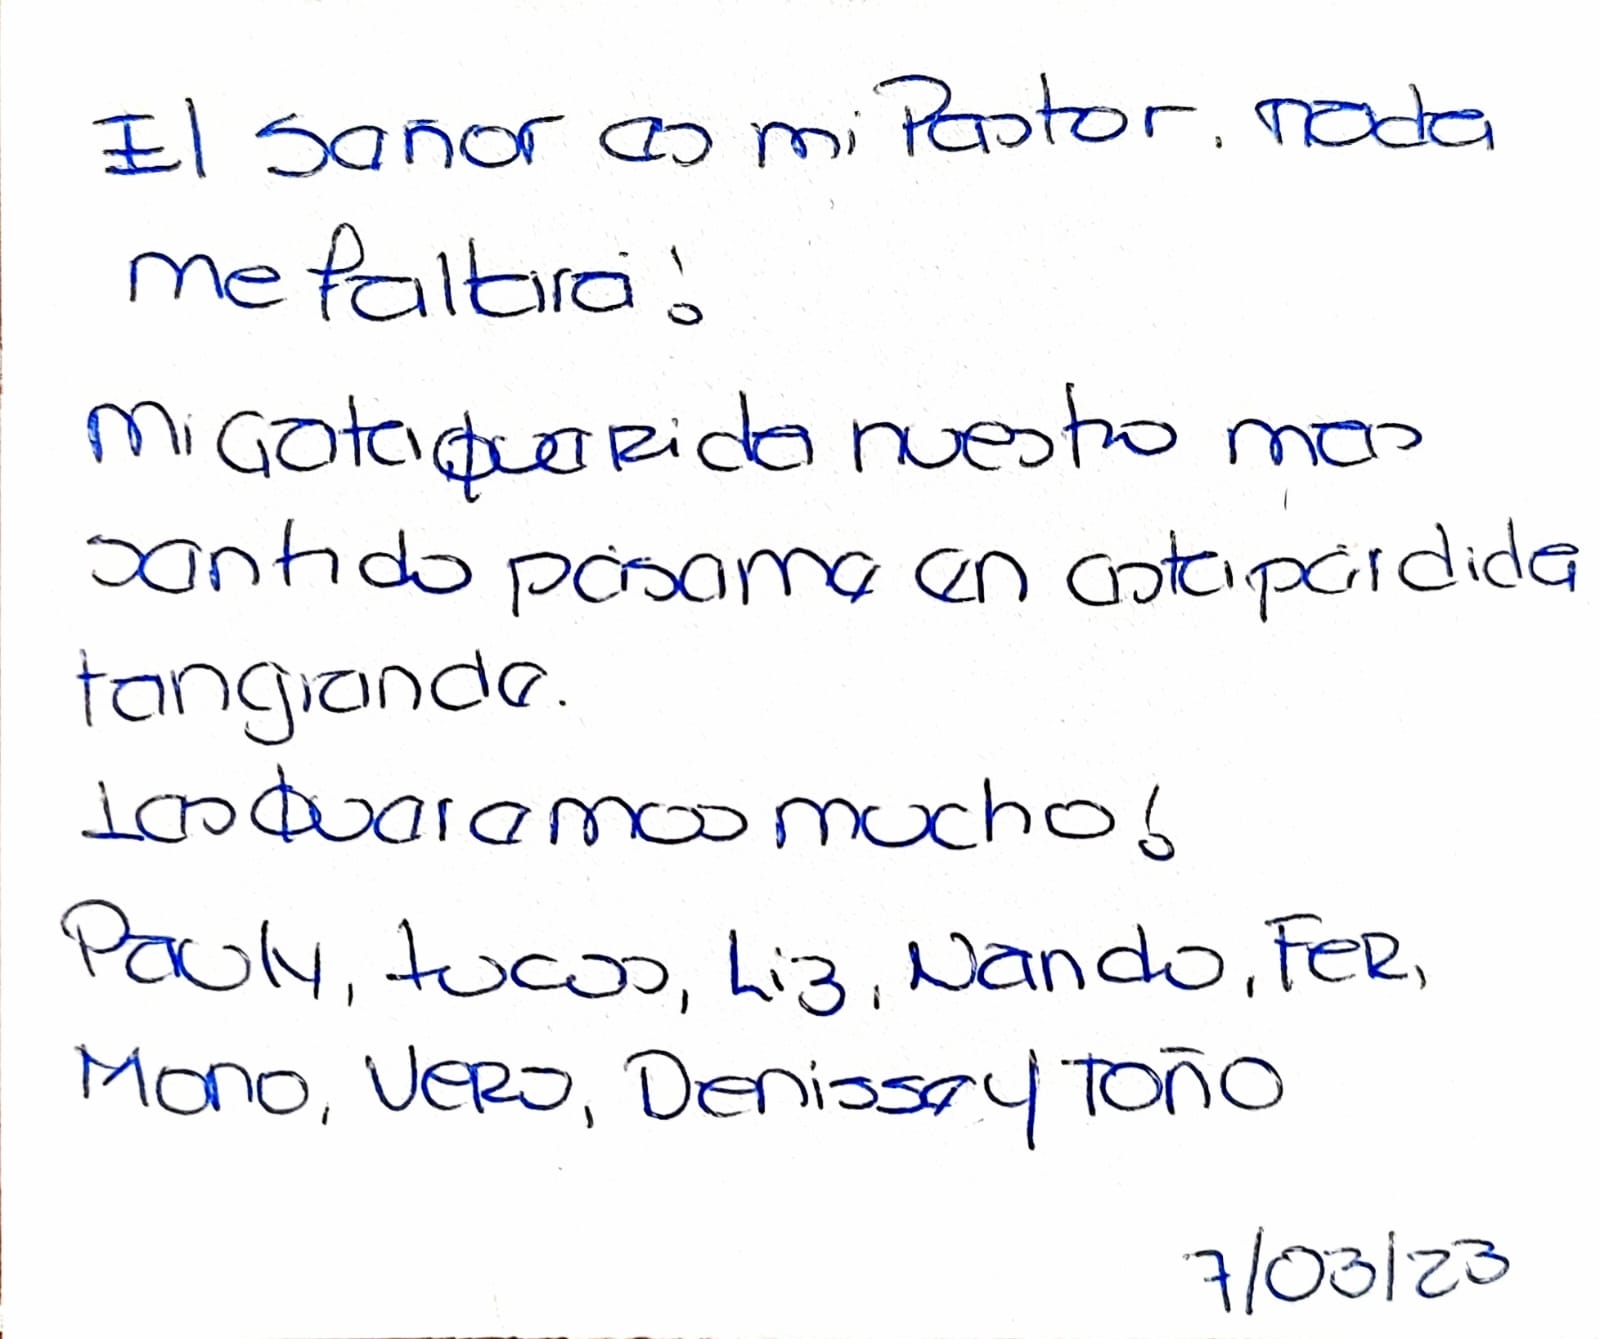 El señor es mi Pastor. nada
me faltará!
Mi Gota querida nuestro mas
sentido pésame en esta pérdida
tan grande.
Los queremos mucho!
Pauly, Lucas, Liz, Nando, Fer,
Mono, Vero, Denisse y Toño
7/03/23